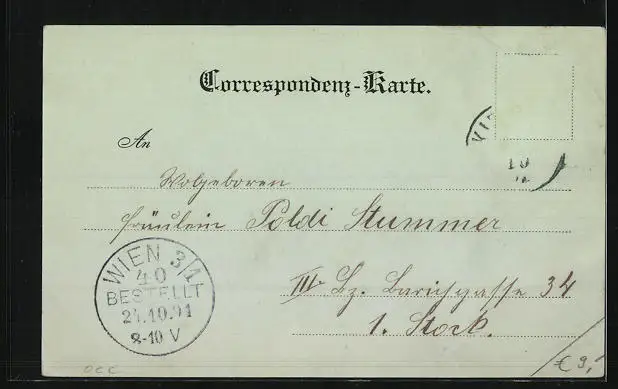 Correspondenz-Karte.
An
Wolgeboren
Fräulein Poldi Stummer
III Bz. Barichgasse 34
1. Stock.
WIEN 3/1
40
BESTELLT
24.10.01
8-10 V
WIE
10
occ
€ 9,-